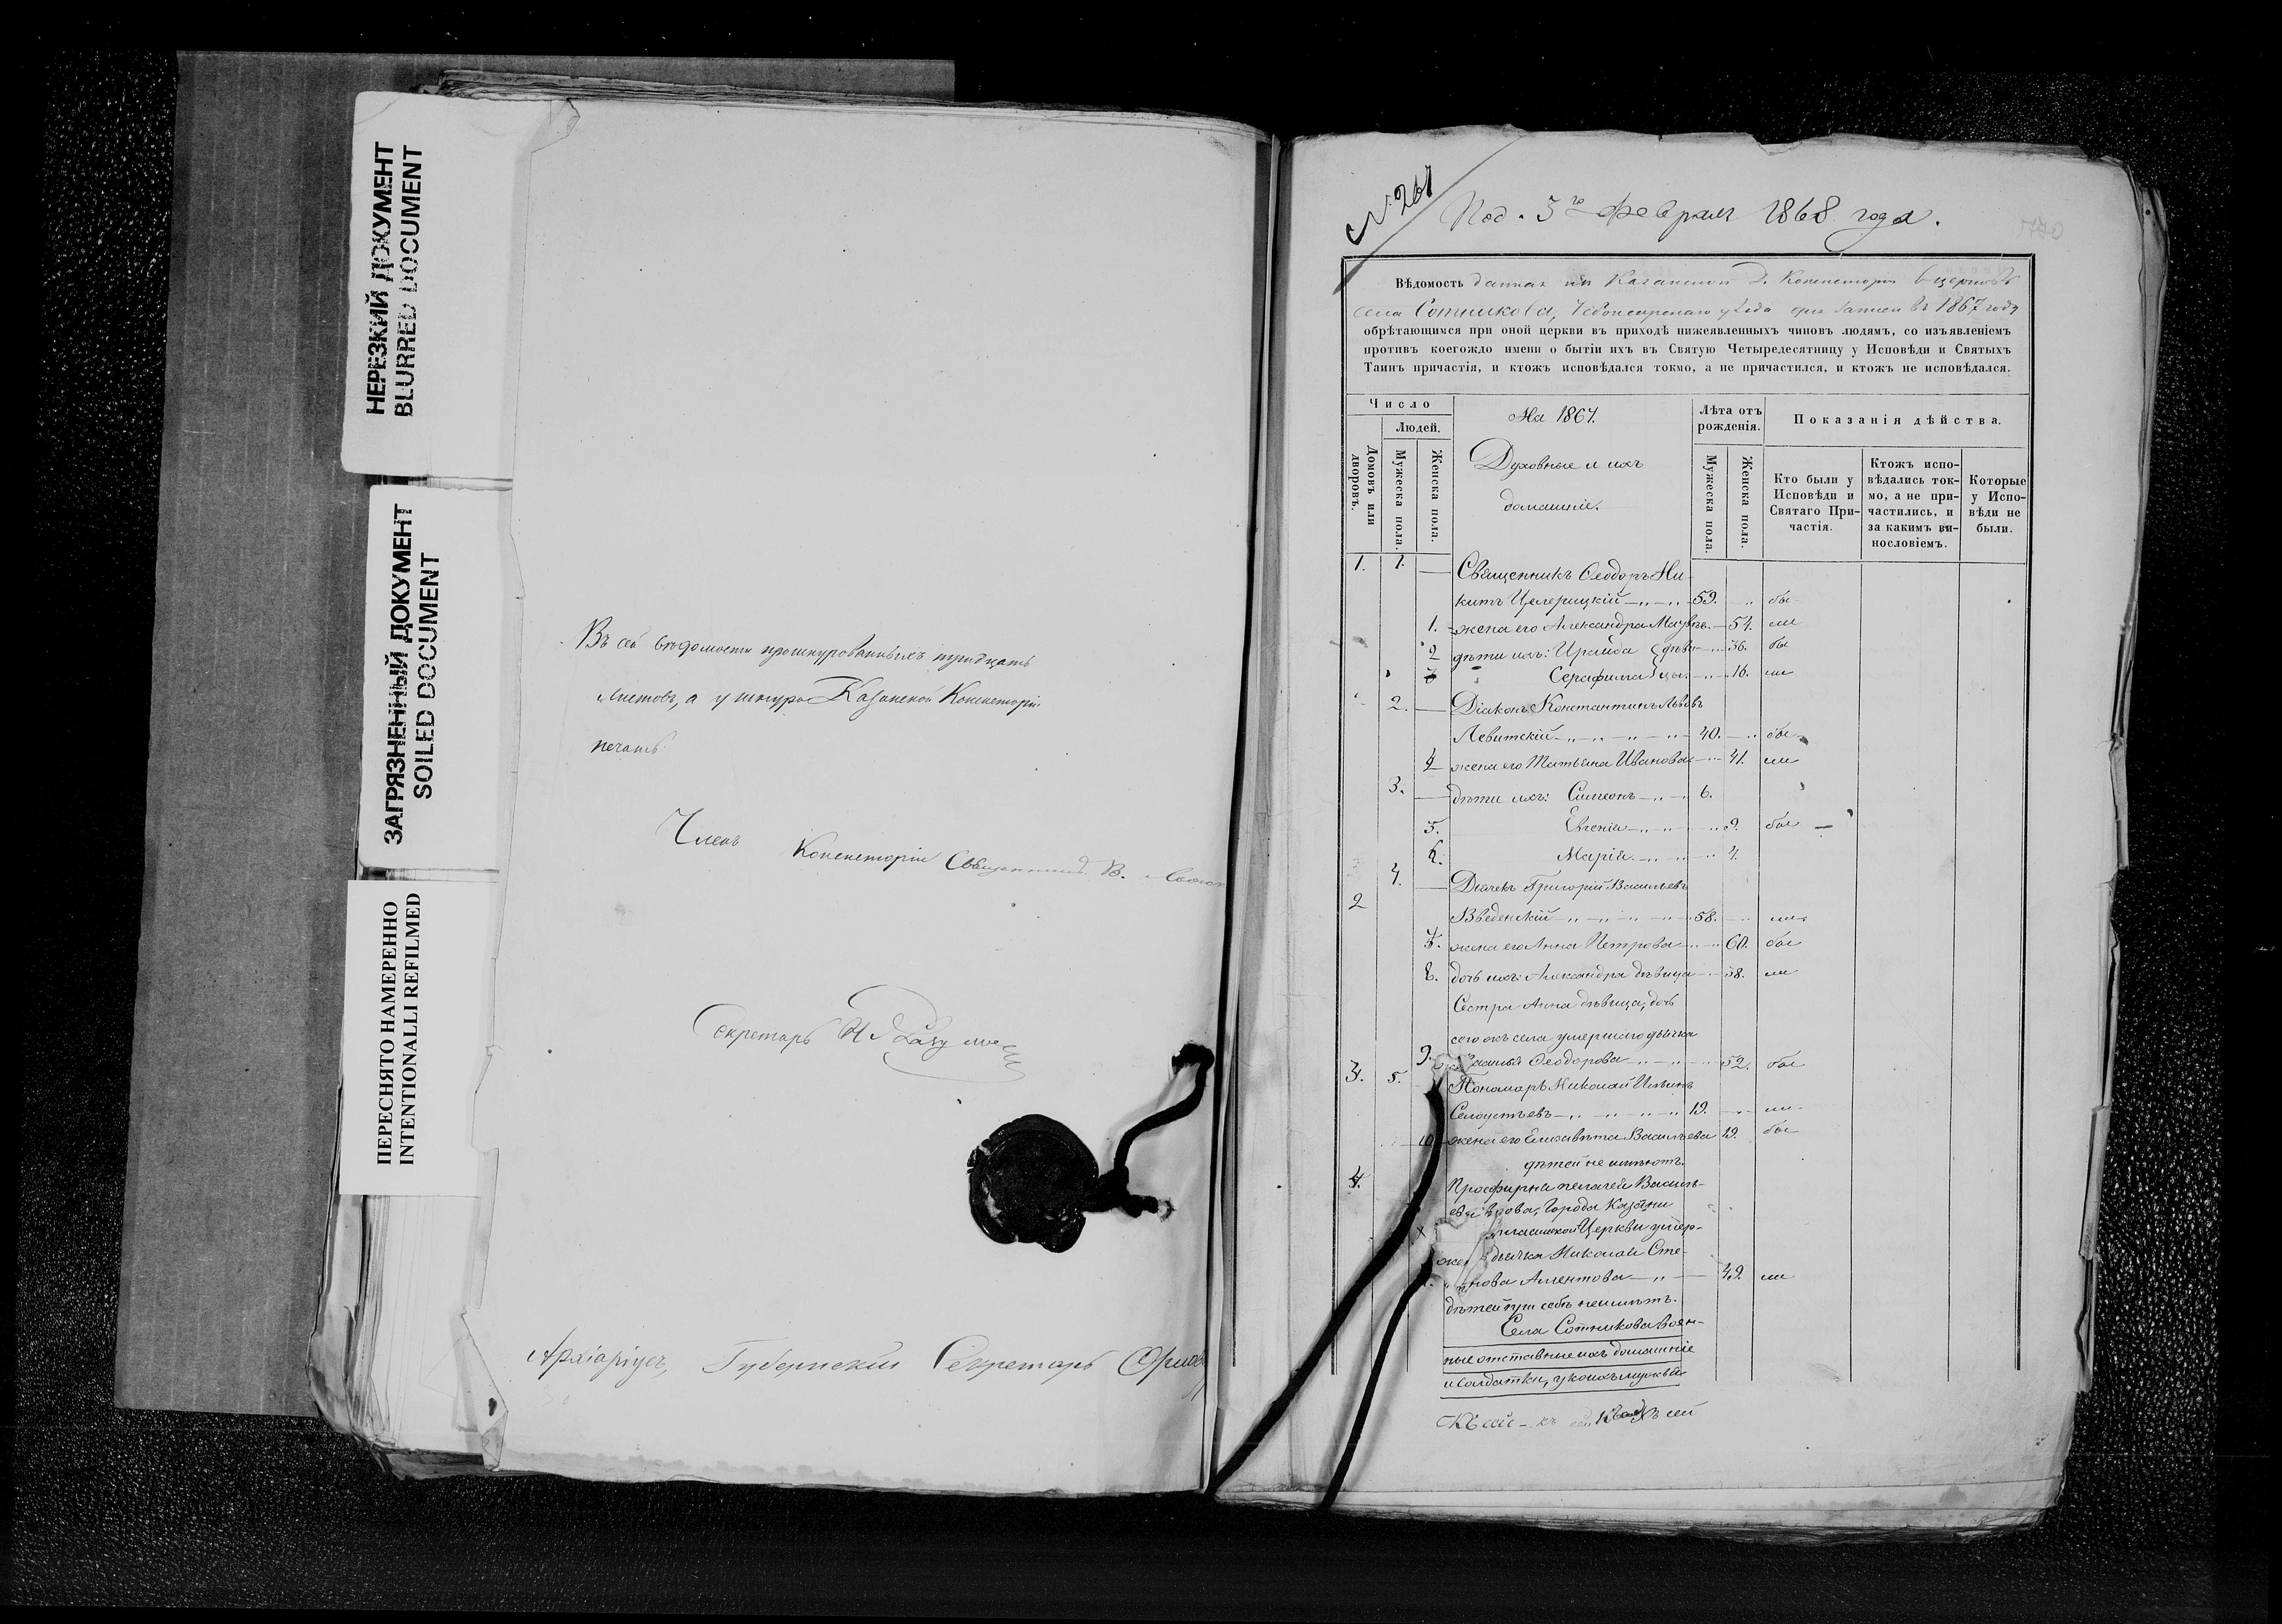 НЕРЕЗКИЙ ДОКУМЕНТ
BLURRED DOCUMENT
ЗАГРЯЗНЕННЫЙ ДОКУМЕНТ
SOILED DOCUMENT
ПЕРЕСНЯТО НАМЕРЕННО
INTENTIONALLI REFILMED
Въ сей вѣдомости прошнурованныхъ тридцать
листовъ, а у шнура Казанской Консисторіи
печать.
Членъ Консисторіи Священникъ В.
Секретарь
Архіваріусъ, Губернскій Секретарь
№ 267
Под. 3го февраля 1868 года.
Вѣдомость данная изъ Казанской Д. Консисторіи въ церковь
села Сотникова, Чебоксарскаго уѣзда для записи въ 1867 году
обрѣтающимся при оной церкви въ приходѣ нижеявленныхъ чиновъ людямъ, со изъявленіемъ
противъ коегождо имени о бытіи ихъ въ Святую Четыредесятницу у Исповѣди и Святыхъ
Таинъ причастія, и ктожъ исповѣдался токмо, а не причастился, и ктожъ не исповѣдался.
Число
Людей.
Домовъ или дворовъ.
Мужеска пола.
Женска пола.
На 1867.
Духовные и ихъ
домашніе.
Лѣта отъ рожденія.
Мужеска пола.
Женска пола.
Показанія дѣйства.
Кто были у Исповѣди и Святаго Причастія.
Ктожъ исповѣдались токмо, а не причастились, и за какимъ винословіемъ.
Которые у Исповѣди не были.
1. 1. Священникъ Ѳеодоръ Ни-
китъ 59. бы
1. жена его Александра 54. ли
2 дѣти ихъ: Ираида дѣви- 36. бы
3 Серафима цы. 16. ли
2. Діаконъ Константинъ Львовъ
Левитскій 40. бы
4 жена его Татьяна Иванова 41. ли
3. дѣти ихъ: Симеонъ 6.
5. Евгенія 9. бы
6. Марія 4.
4. Дьячекъ Григорій Васильевъ
2
Введенскій 58. ли
7. жена его Анна Петрова 60. бы
8. дочь ихъ: Александра дѣвица 38. ли
Сестра Анна дѣвица, дочь
сего жъ села умершаго дьячка
9. Ѳеодорова 52. бы
3. 5. Пономарь Николай Ильинъ
19. ли
10 жена его Елизавета Васильева 19. бы
дѣтей не имѣютъ.
4. Просфирня Пелагея Василь-
ева вдова, города Казани
Церкви умер-
дьячка Николая Сте-
49. ли
дѣтей при себѣ не имѣетъ.
Села Сотникова воен-
ные отставные ихъ домашніе
и солдатки, у коихъ мужья
Къ сей